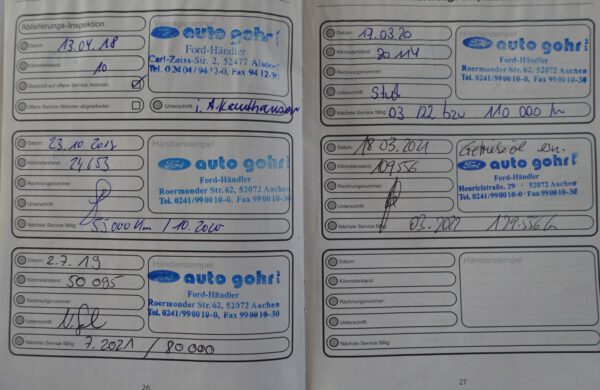 Ablieferungs-Inspektion
Datum: 13.04.18
Kilometerstand: 10
Überprüft auf offene Service Aktionen
Offene Service Aktionen abgearbeitet
Ford auto gohr
Ford-Händler
Carl-Zeiss-Str. 2, 52477 Alsdorf
Tel. 02404/9412-0, Fax 9412-30
Unterschrift: i. A.
Datum:
Kilometerstand: 24653
Rechnungsnummer:
Unterschrift:
Nächste Service fällig: 55000 km / 10.2020
Händlerstempel
Ford auto gohr
Ford-Händler
Roermonder Str. 62, 52072 Aachen
Tel. 0241/990010-0, Fax 990010-30
Datum: 2.7.19
Kilometerstand: 50 095
Rechnungsnummer:
Unterschrift:
Nächste Service fällig: 7.2021 / 80000
Händlerstempel
Ford auto gohr
Ford-Händler
Roermonder Str. 62, 52072 Aachen
Tel. 0241/990010-0, Fax 990010-30
26
Datum: 17.03.20
Kilometerstand:
Rechnungsnummer:
Unterschrift:
Nächste Service fällig: 03 110 000 km
Ford auto gohr
Ford-Händler
Roermonder Str. 62, 52072 Aachen
Tel. 0241/990010-0, Fax 990010-30
Datum: 18 03.2021
Kilometerstand: 109556
Rechnungsnummer:
Unterschrift:
Nächste Service fällig: 03.2022 129.556 km
Ford auto gohr
Ford-Händler
Henricistraße. 29 - 52072 Aachen
Tel. 0241/990010-0, Fax 990010-30
Datum:
Kilometerstand:
Rechnungsnummer:
Unterschrift:
Nächste Service fällig:
Händlerstempel
27